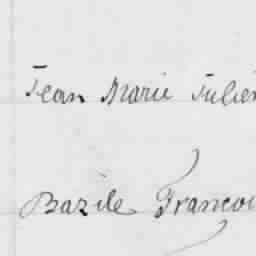 Jean Marie Julien
Bazile Francoi